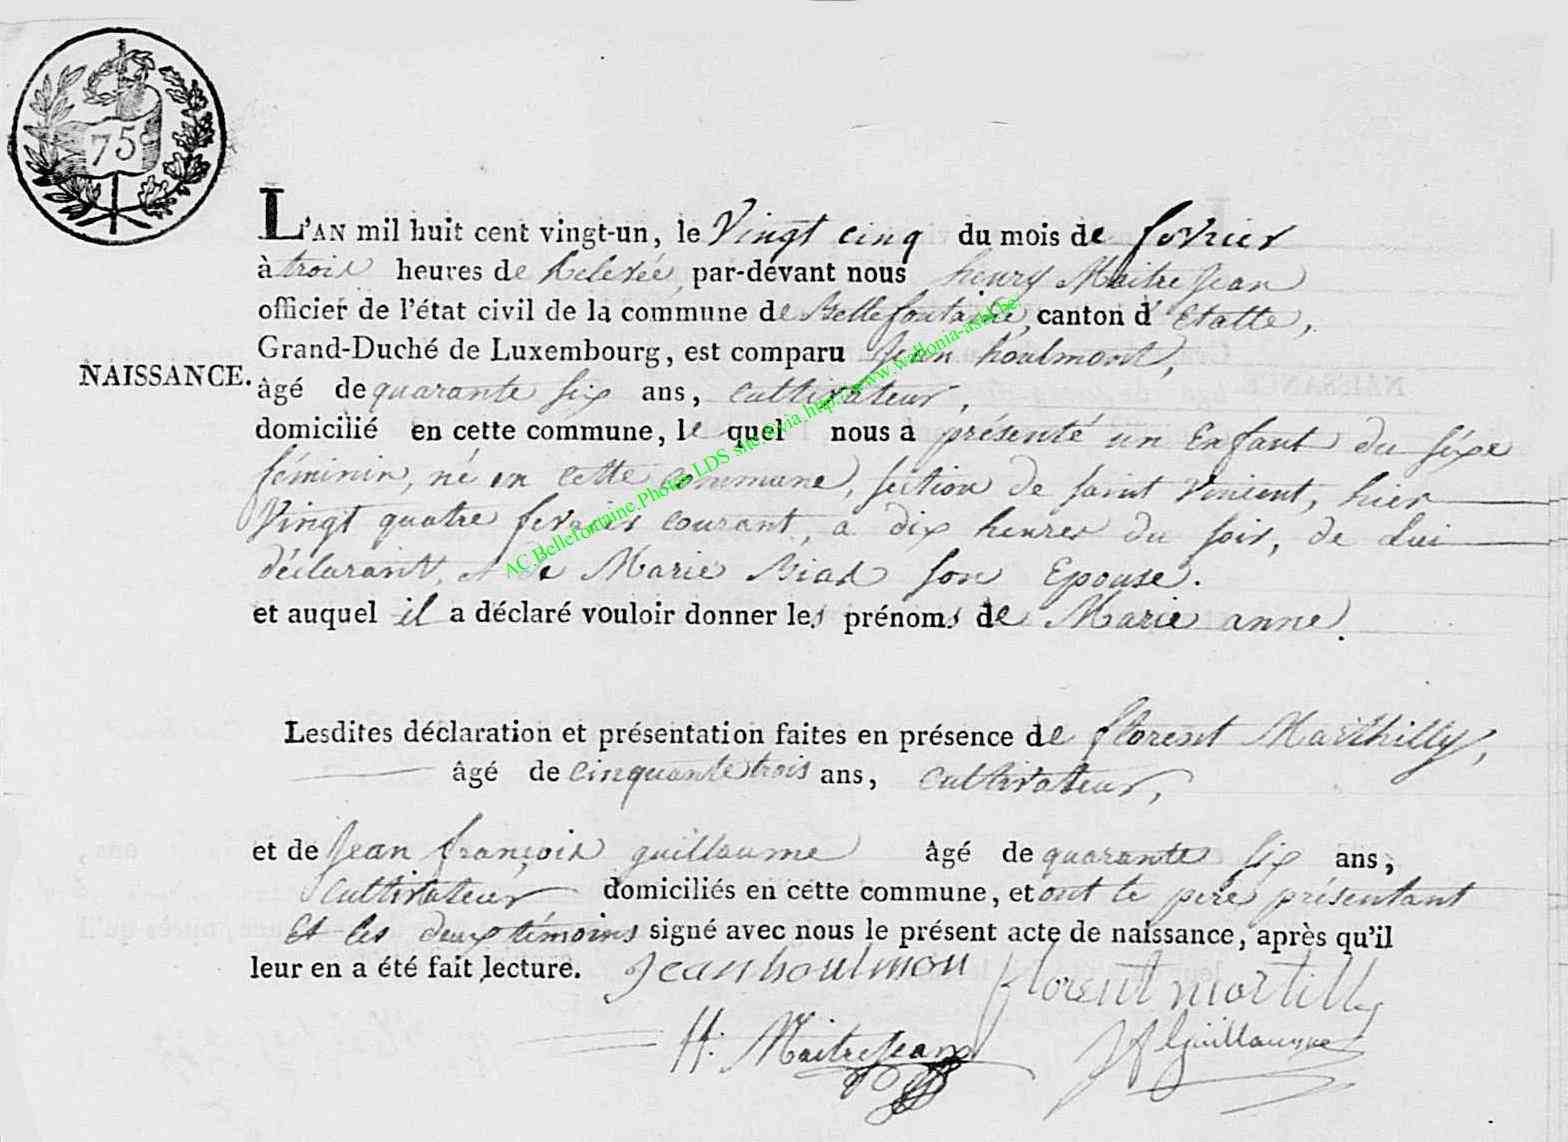 75
L'AN mil huit cent vingt-un, le Vingt cinq du mois de fevrier
à trois heures de Relevée, par-devant nous henry Maitrejean
officier de l'état civil de la commune de Bellefontaine, canton d'Etalle,
Grand-Duché de Luxembourg, est comparu Jean houlmont,
NAISSANCE. âgé de quarante six ans, cultivateur,
domicilié en cette commune, le quel nous a présenté un Enfant du séxe
féminin, né en cette commune, section de saint Vincent, hier
Vingt quatre fevrier courant, a dix heures du soir, de Lui
déclarant, et de Marie son Epouse.
et auquel il a déclaré vouloir donner les prénoms de Marie anne.
Lesdites déclaration et présentation faites en présence de florent Marthilly,
âgé de cinquante trois ans, cultivateur,
et de Jean françois guillaume âgé de quarante six ans,
cultivateur domiciliés en cette commune, et ont le pere présentant
Et les deux témoins signé avec nous le présent acte de naissance, après qu'il
leur en a été fait lecture. Jean houlmon florent martilly
H. Maitrejean JF Guillaume
AC.Bellefontaine.Photos LDS site via http://www.wallonia-asbl.be